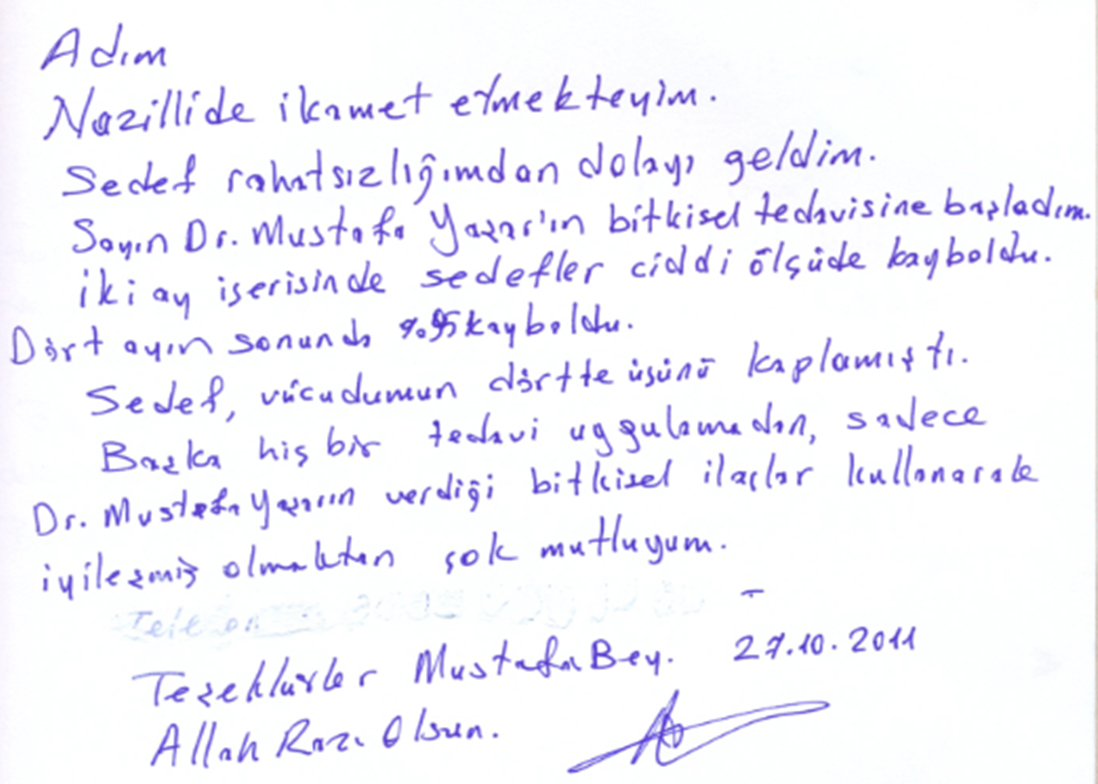 Adım
Nazillide ikamet etmekteyim.
Sedef rahatsızlığımdan dolayı geldim.
Sayın Dr. Mustafa Yaşar'ın bitkisel tedavisine başladım.
iki ay içerisinde sedefler ciddi ölçüde kayboldu.
Dört ayın sonunda %95 kayboldu.
Sedef, vücudumun dörtte üçünü kaplamıştı.
Başka hiç bir tedavi uygulamadan, sadece
Dr. Mustafa Yaşarın verdiği bitkisel ilaçlar kullanarak
iyileşmiş olmaktan çok mutluyum.
Teşekkürler Mustafa Bey. 27.10.2011
Allah Razı Olsun.